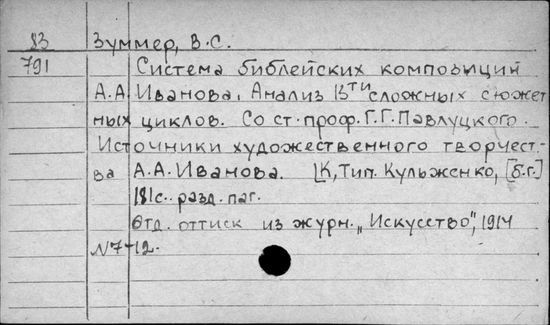 83 Зуммер, В.С.
791 Система библейских композиций
А.А. Иванова. Анализ 13ти сложных сюжет
ных циклов. Со ст. проф. Г.Г. Павлуцкого.
Источники художественного творчест-
ва А.А. Иванова. [К, Тип. Кульженко, [б.г.]
181с. разд. паг.
Отд. оттиск из журн. „Искусство", 1914
N 7-12.